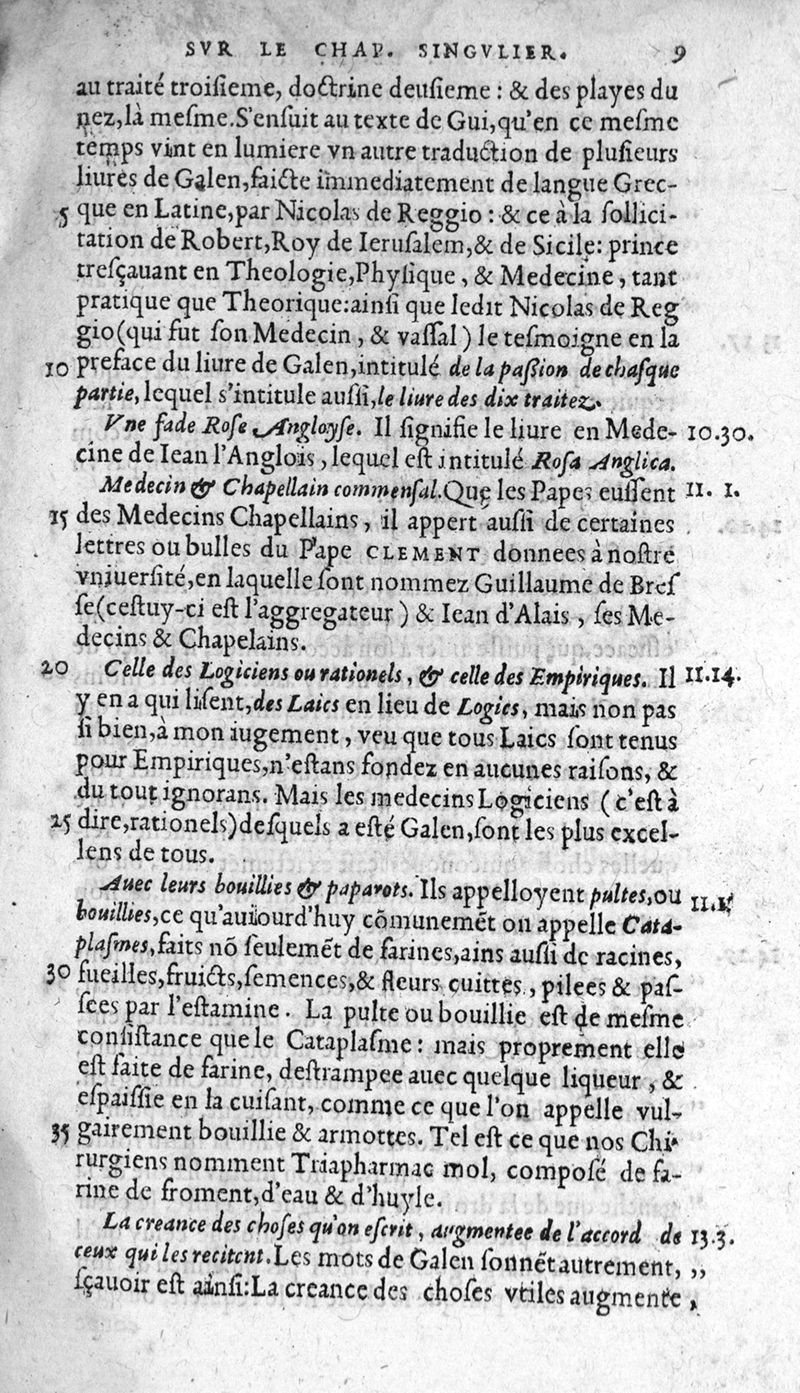 SVR LE CHAP. SINGVLIER. 9
au traité troiſieme, doctrine deuſieme : & des playes du
nez, là meſme. S'enſuit au texte de Gui, qu'en ce meſme
temps vint en lumiere vn autre traduction de pluſieurs
liures de Galen, faicte immediatement de langue Grec-
5 que en Latine, par Nicolas de Reggio : & ce à la ſollici-
tation de Robert, Roy de Ieruſalem, & de Sicile: prince
treſçauant en Theologie, Phyſique, & Medecine, tant
pratique que Theorique: ainſi que ledit Nicolas de Reg
gio (qui fut ſon Medecin, & vaſſal) le teſmoigne en la
10 preface du liure de Galen, intitulé de la paſsion de chaſque
partie, lequel s'intitule auſſi, le liure des dix traitez.
Vne fade Roſe Angloyſe. Il ſignifie le liure en Mede- 10.30.
cine de Iean l'Anglois, lequel eſt intitulé Roſa Anglica.
Medecin & Chapellain commenſal. Que les Papes euſſent 11. 1.
15 des Medecins Chapellains, il appert auſſi de certaines
lettres ou bulles du Pape CLEMENT donnees à noſtre
vniuerſité, en laquelle ſont nommez Guillaume de Breſ
ſe (ceſtuy-ci eſt l'aggregateur) & Iean d'Alais, ſes Me-
decins & Chapelains.
20 Celle des Logiciens ou rationels, & celle des Empiriques. Il 11.14.
y en a qui liſent, des Laics en lieu de Logics, mais non pas
ſi bien, à mon iugement, veu que tous Laics ſont tenus
pour Empiriques, n'eſtans fondez en aucunes raiſons, &
du tout ignorans. Mais les medecins Logiciens (c'eſt à
25 dire, rationels) deſquels a eſté Galen, ſont les plus excel-
lens de tous.
Auec leurs bouillies & paparots. Ils appelloyent pultes, ou
bouillies, ce qu'auiourd'huy cõmunemẽt on appelle Cata-
plaſmes, faits nõ ſeulemẽt de farines, ains auſſi de racines,
30 fueilles, fruicts, ſemences, & fleurs cuittes, pilees & paſ-
ſees par l'eſtamine. La pulte ou bouillie eſt de meſme
conſiſtance que le Cataplaſme: mais proprement elle
eſt faite de farine, deſtrampee auec quelque liqueur, &
eſpaiſſie en la cuiſant, comme ce que l'on appelle vul-
35 gairement bouillie & armottes. Tel eſt ce que nos Chi-
rurgiens nomment Triapharmac mol, compoſé de fa-
rine de froment, d'eau & d'huyle.
La creance des choſes qu'on eſcrit, augmentee de l'accord de 13.3.
ceux qui les recitent. Les mots de Galen ſonnẽt autrement, ,,
ſçauoir eſt ainſi: La creance des choſes vtiles augmente,